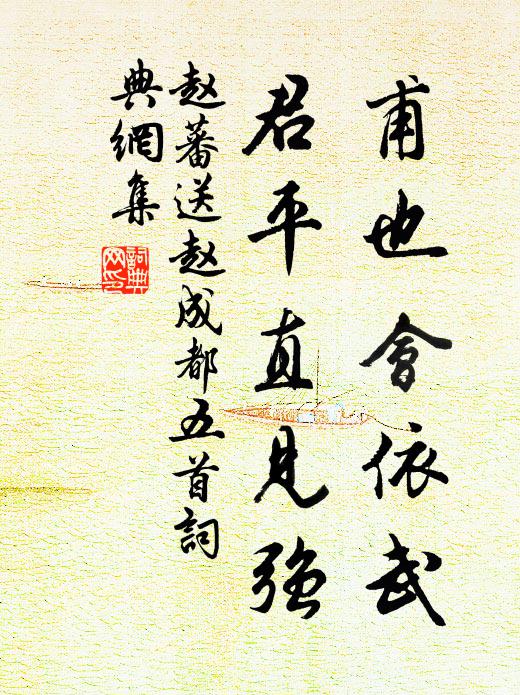 甫也會依武
君平直見強
赵蕃送赵成都五首詞
典網集
詞典
网印